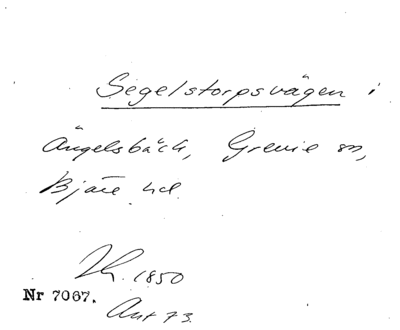 Segelstorpsvägen i
Ängelsbäck, Grevie sn,
Bjäre hd.
1850
Nr 7067.
Ant 73.